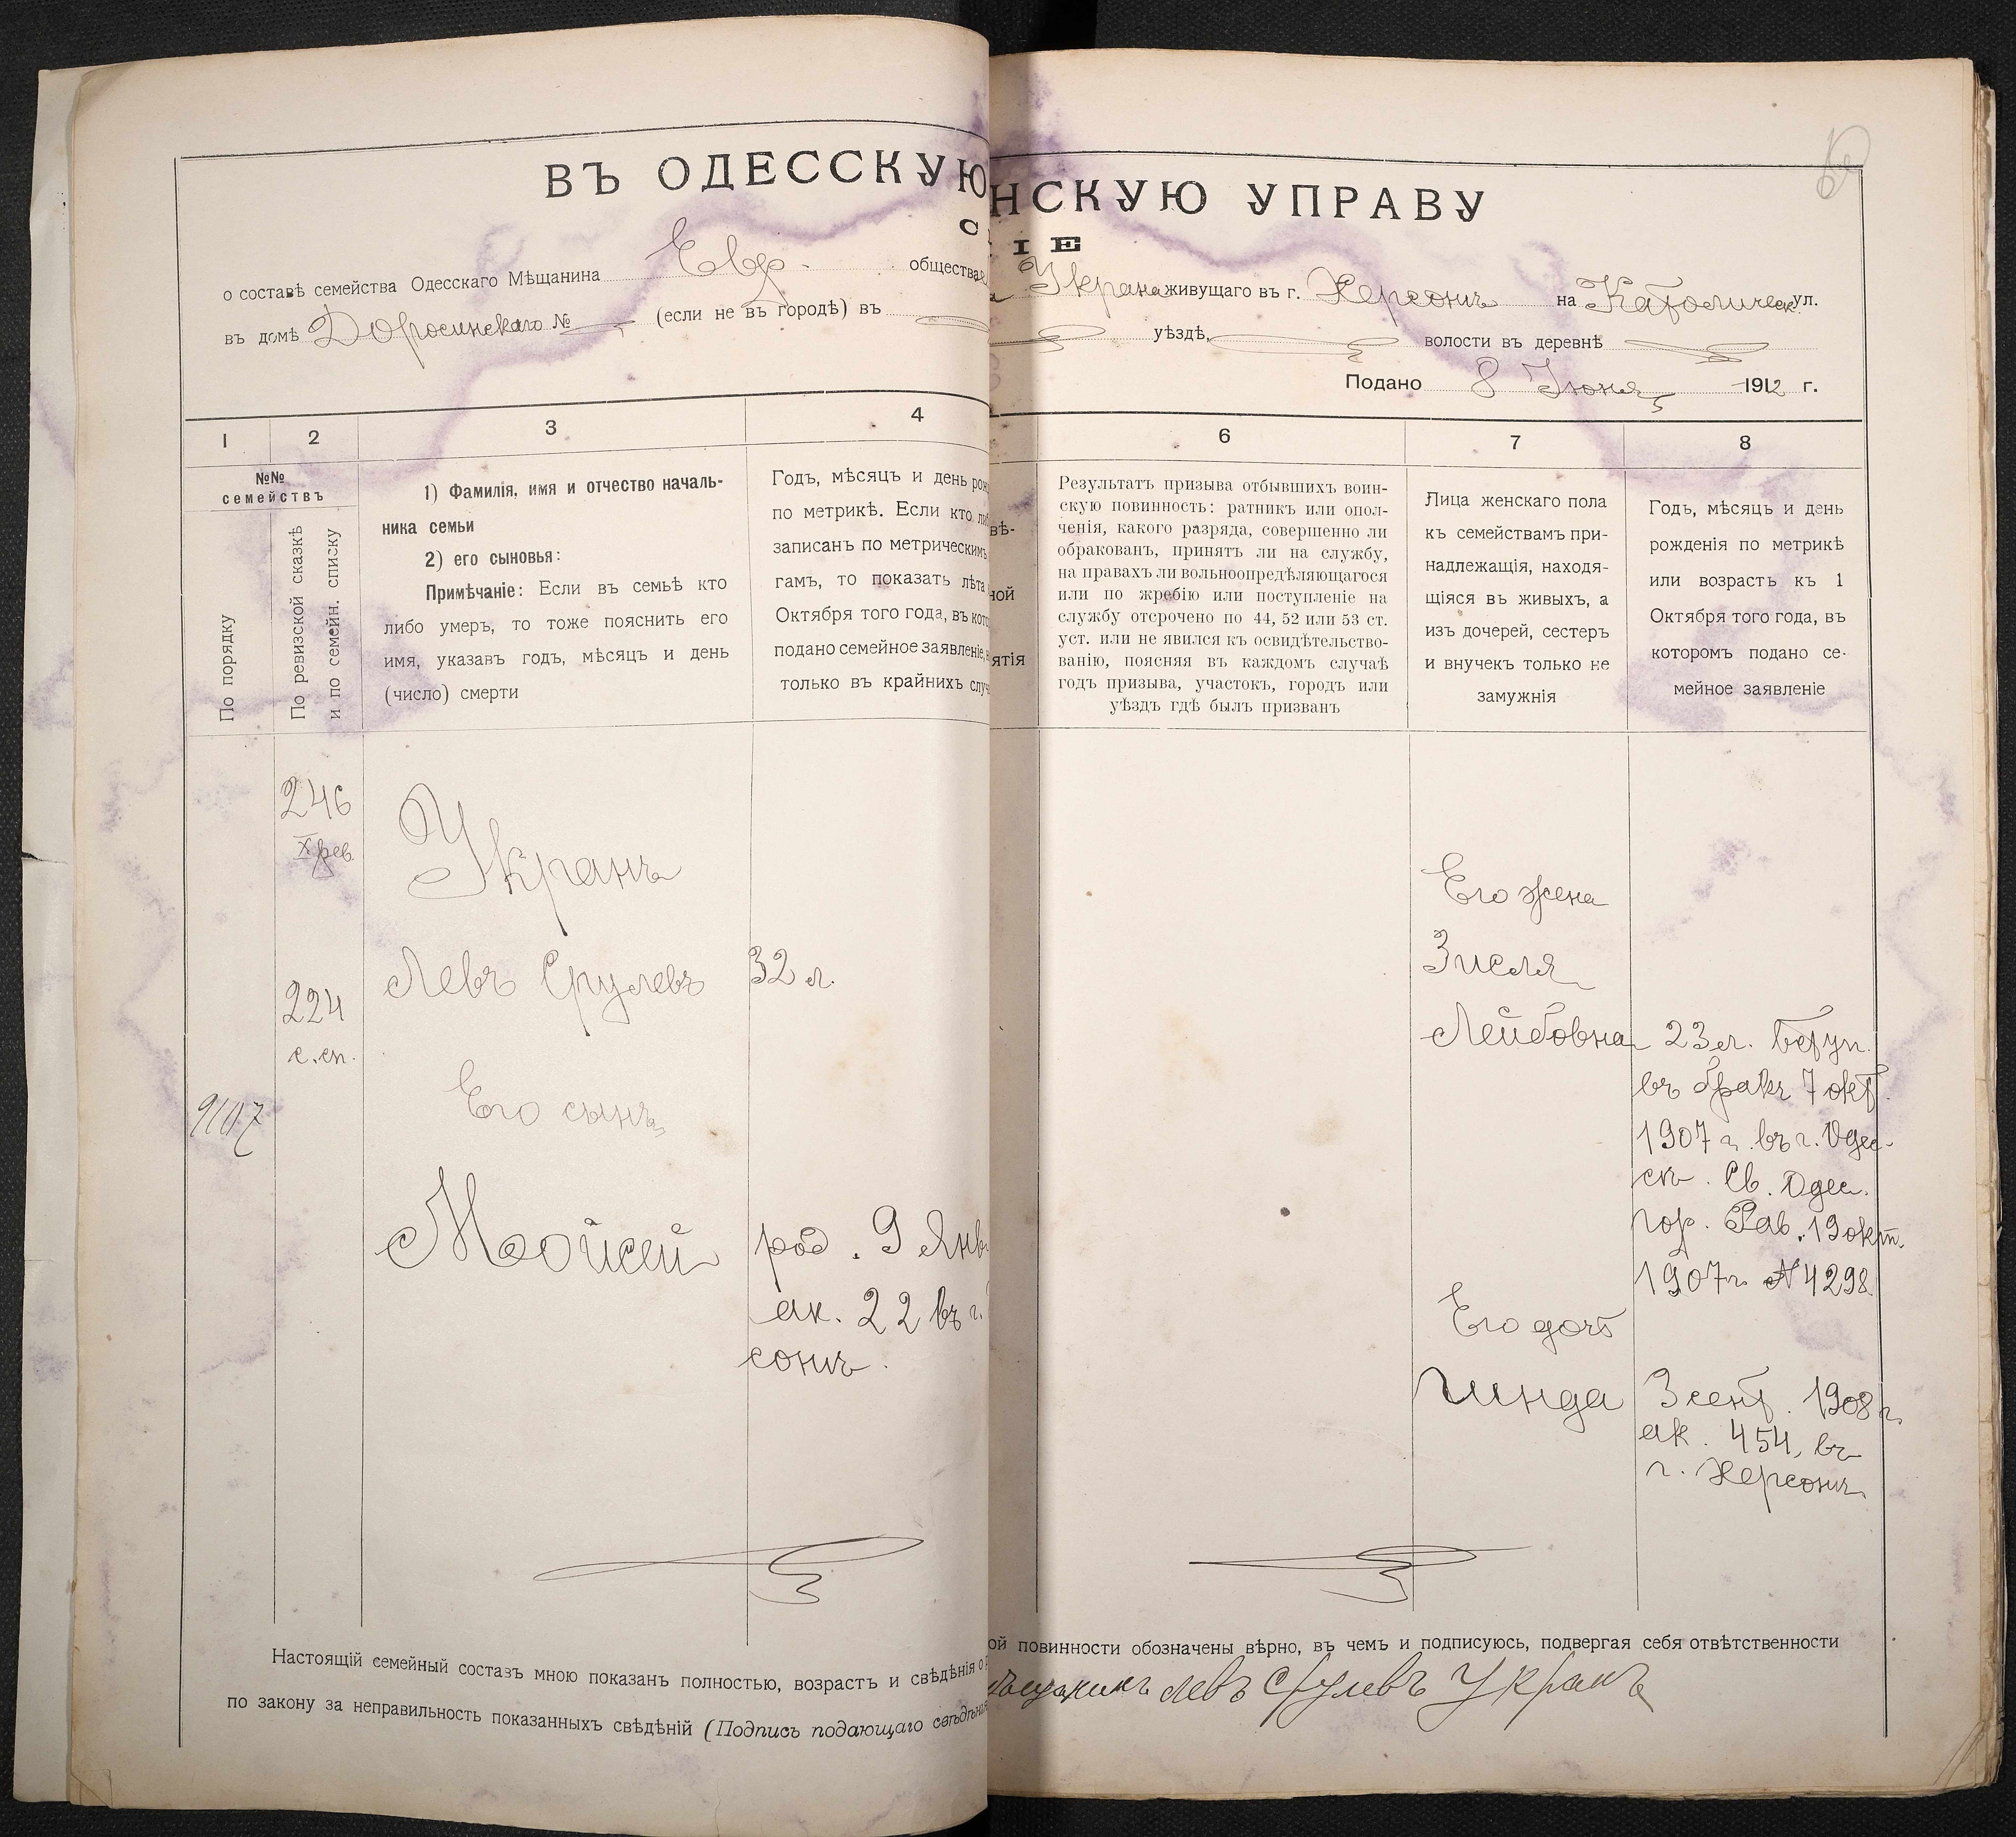 ВЪ ОДЕССКУЮ
НСКУЮ УПРАВУ
С
ІЕ
о составѣ семейства Одесскаго Мѣщанина Евр. общества
Украна живущаго въ г. Херсонѣ на Католическ ул.
въ домѣ Доросинскаго № (если не въ городѣ) въ
уѣздѣ, волости въ деревнѣ
Подано 8 Июня 1912 г.
1 2 3 4
6 7 8
№№
семействъ
По порядку
По ревизской сказкѣ
и по семейн. списку
1) Фамилія, имя и отчество началь-
ника семьи
2) его сыновья:
Примѣчаніе: Если въ семьѣ кто
либо умеръ, то тоже пояснить его
имя, указавъ годъ, мѣсяцъ и день
(число) смерти
Годъ, мѣсяцъ и день рож
по метрикѣ. Если кто ли
записанъ по метрическимъ
гамъ, то показать лѣта
Октября того года, въ кото
подано семейное заявленіе,
только въ крайнихъ случ
вѣ-
ной
ятія
Результатъ призыва отбывшихъ воин-
скую повинность: ратникъ или опол-
ченія, какого разряда, совершенно ли
обракованъ, принятъ ли на службу,
на правахъ ли вольноопредѣляющагося
или по жребію или поступленіе на
службу отсрочено по 44, 52 или 53 ст.
уст. или не явился къ освидѣтельство-
ванію, поясняя въ каждомъ случаѣ
годъ призыва, участокъ, городъ или
уѣздъ гдѣ былъ призванъ
Лица женскаго пола
къ семействамъ при-
надлежащія, находя-
щіяся въ живыхъ, а
изъ дочерей, сестеръ
и внучекъ только не
замужнія
Годъ, мѣсяцъ и день
рожденія по метрикѣ
или возрастъ къ 1
Октября того года, въ
которомъ подано се-
мейное заявленіе
246
X рев.
224
с. сп.
9107
Укранъ
Левъ Срулевъ
32 л.
Его сынъ
Мойсей
род. 9 Янв
ак. 22 въ г.
сонѣ.
Его жена
Зисля
Лейбовна
23 л. Вступ.
въ бракъ 7 окт.
1907 г. въ г. Одес-
сѣ. Св. Одес.
гор. Рав. 19 окт.
1907 г. № 4298
Его дочь
Гинда
3 сент. 1908 г.
ак. 454, въ
г. Херсонѣ.
Настоящій семейный составъ мною показанъ полностью, возрастъ и свѣдѣнія о
ой повинности обозначены вѣрно, въ чемъ и подписуюсь, подвергая себя отвѣтственности
по закону за неправильность показанныхъ свѣдѣній (Подпись подающаго свѣдѣнія
Левъ Срулевъ Укранъ